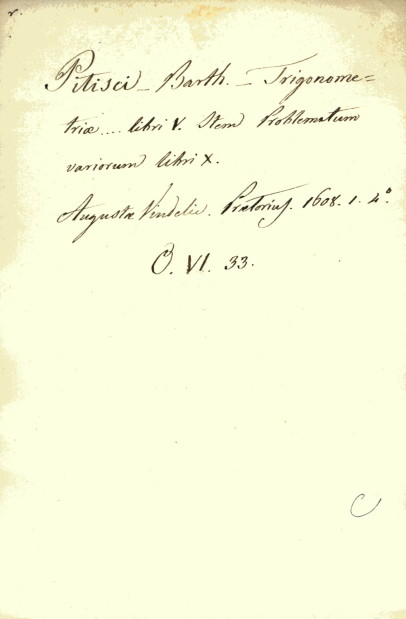 r.
Pitisci _ Barth. _ Trigonome=
triæ .... libri V. Item Problematum
variorum libri X.
Augustæ Vindelic. Prætorius. 1608. 1. 4°.
O. VI. 33.
C